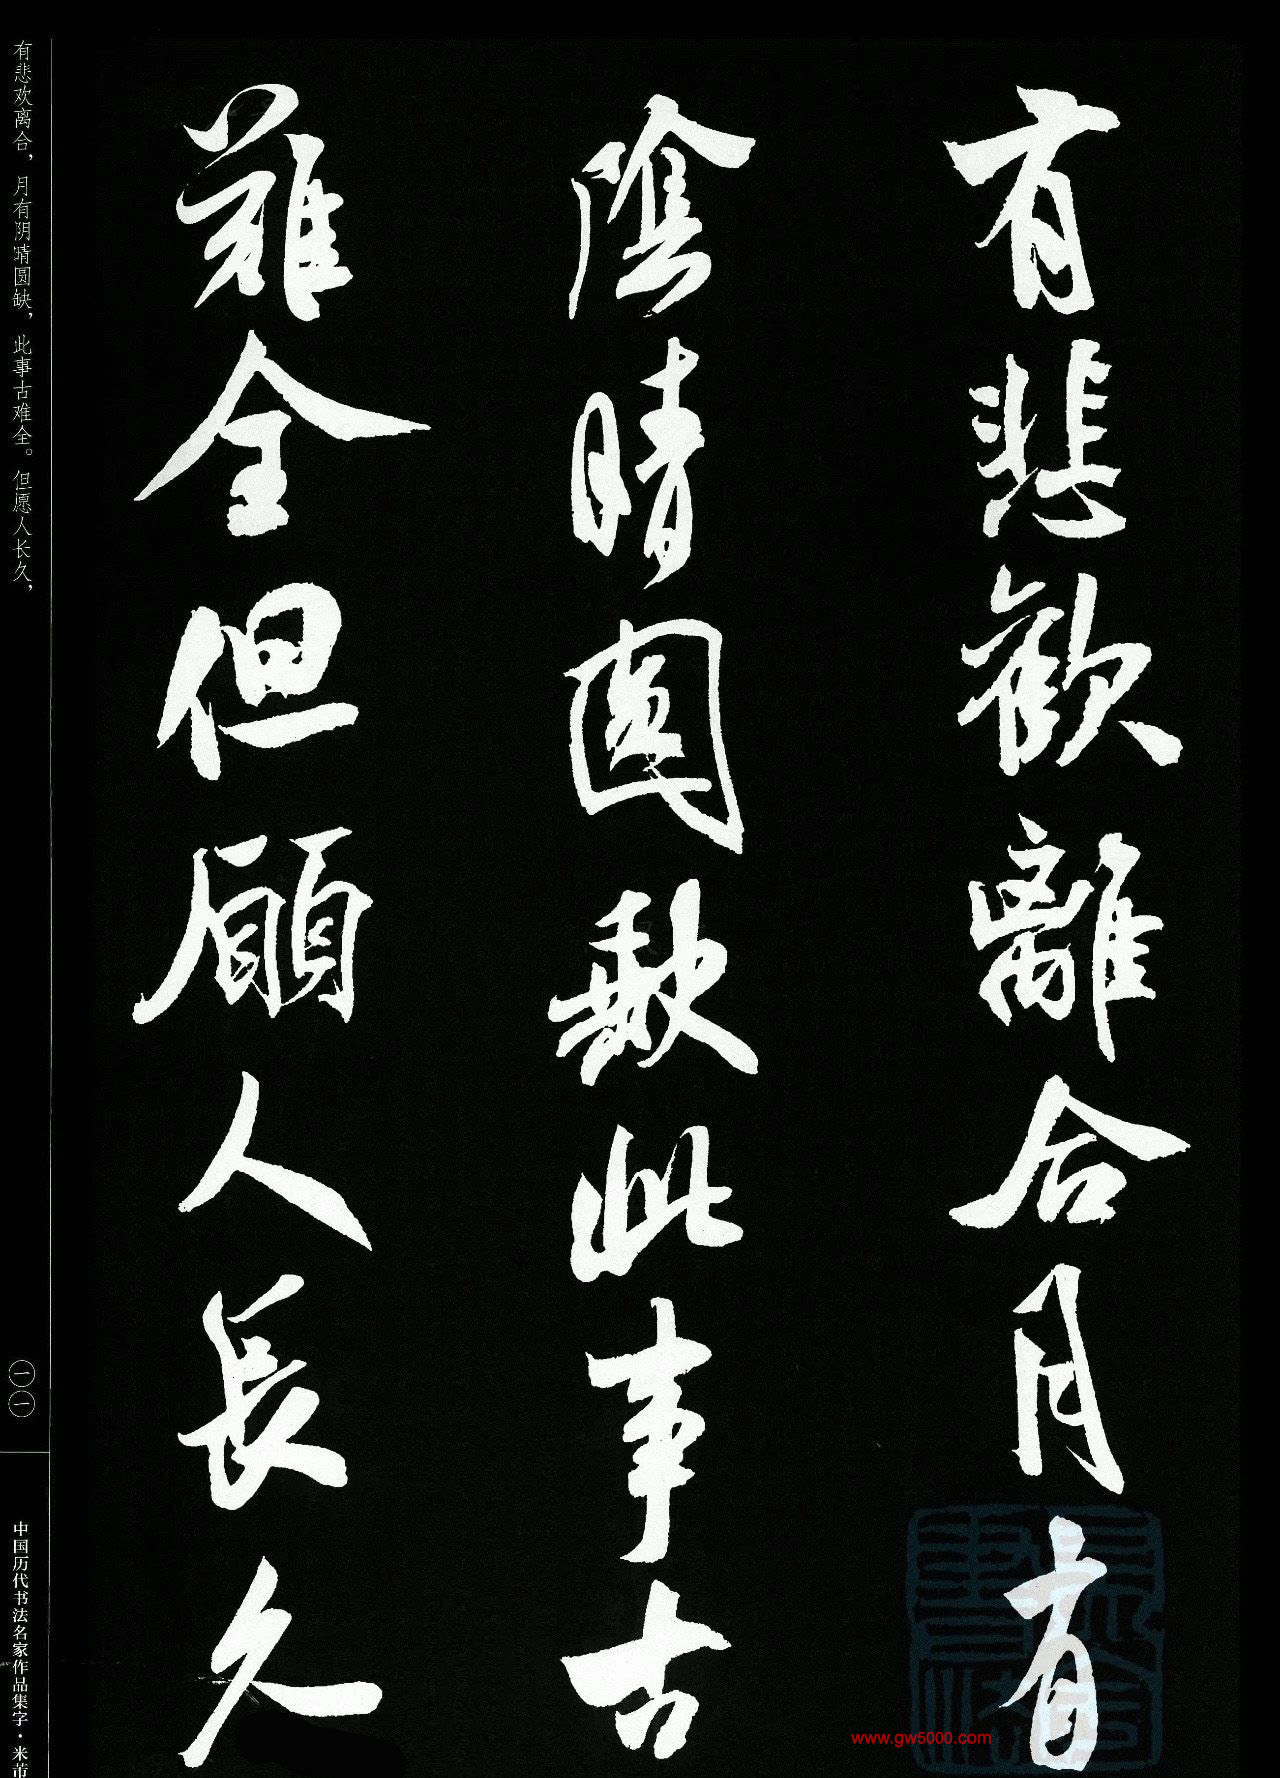 有悲歡離合月有
陰晴圓缺此事古
難全但願人長久
有悲欢离合，月有阴晴圆缺，此事古难全。但愿人长久，
一一
中国历代书法名家作品集字·米芾
www.gw5000.com